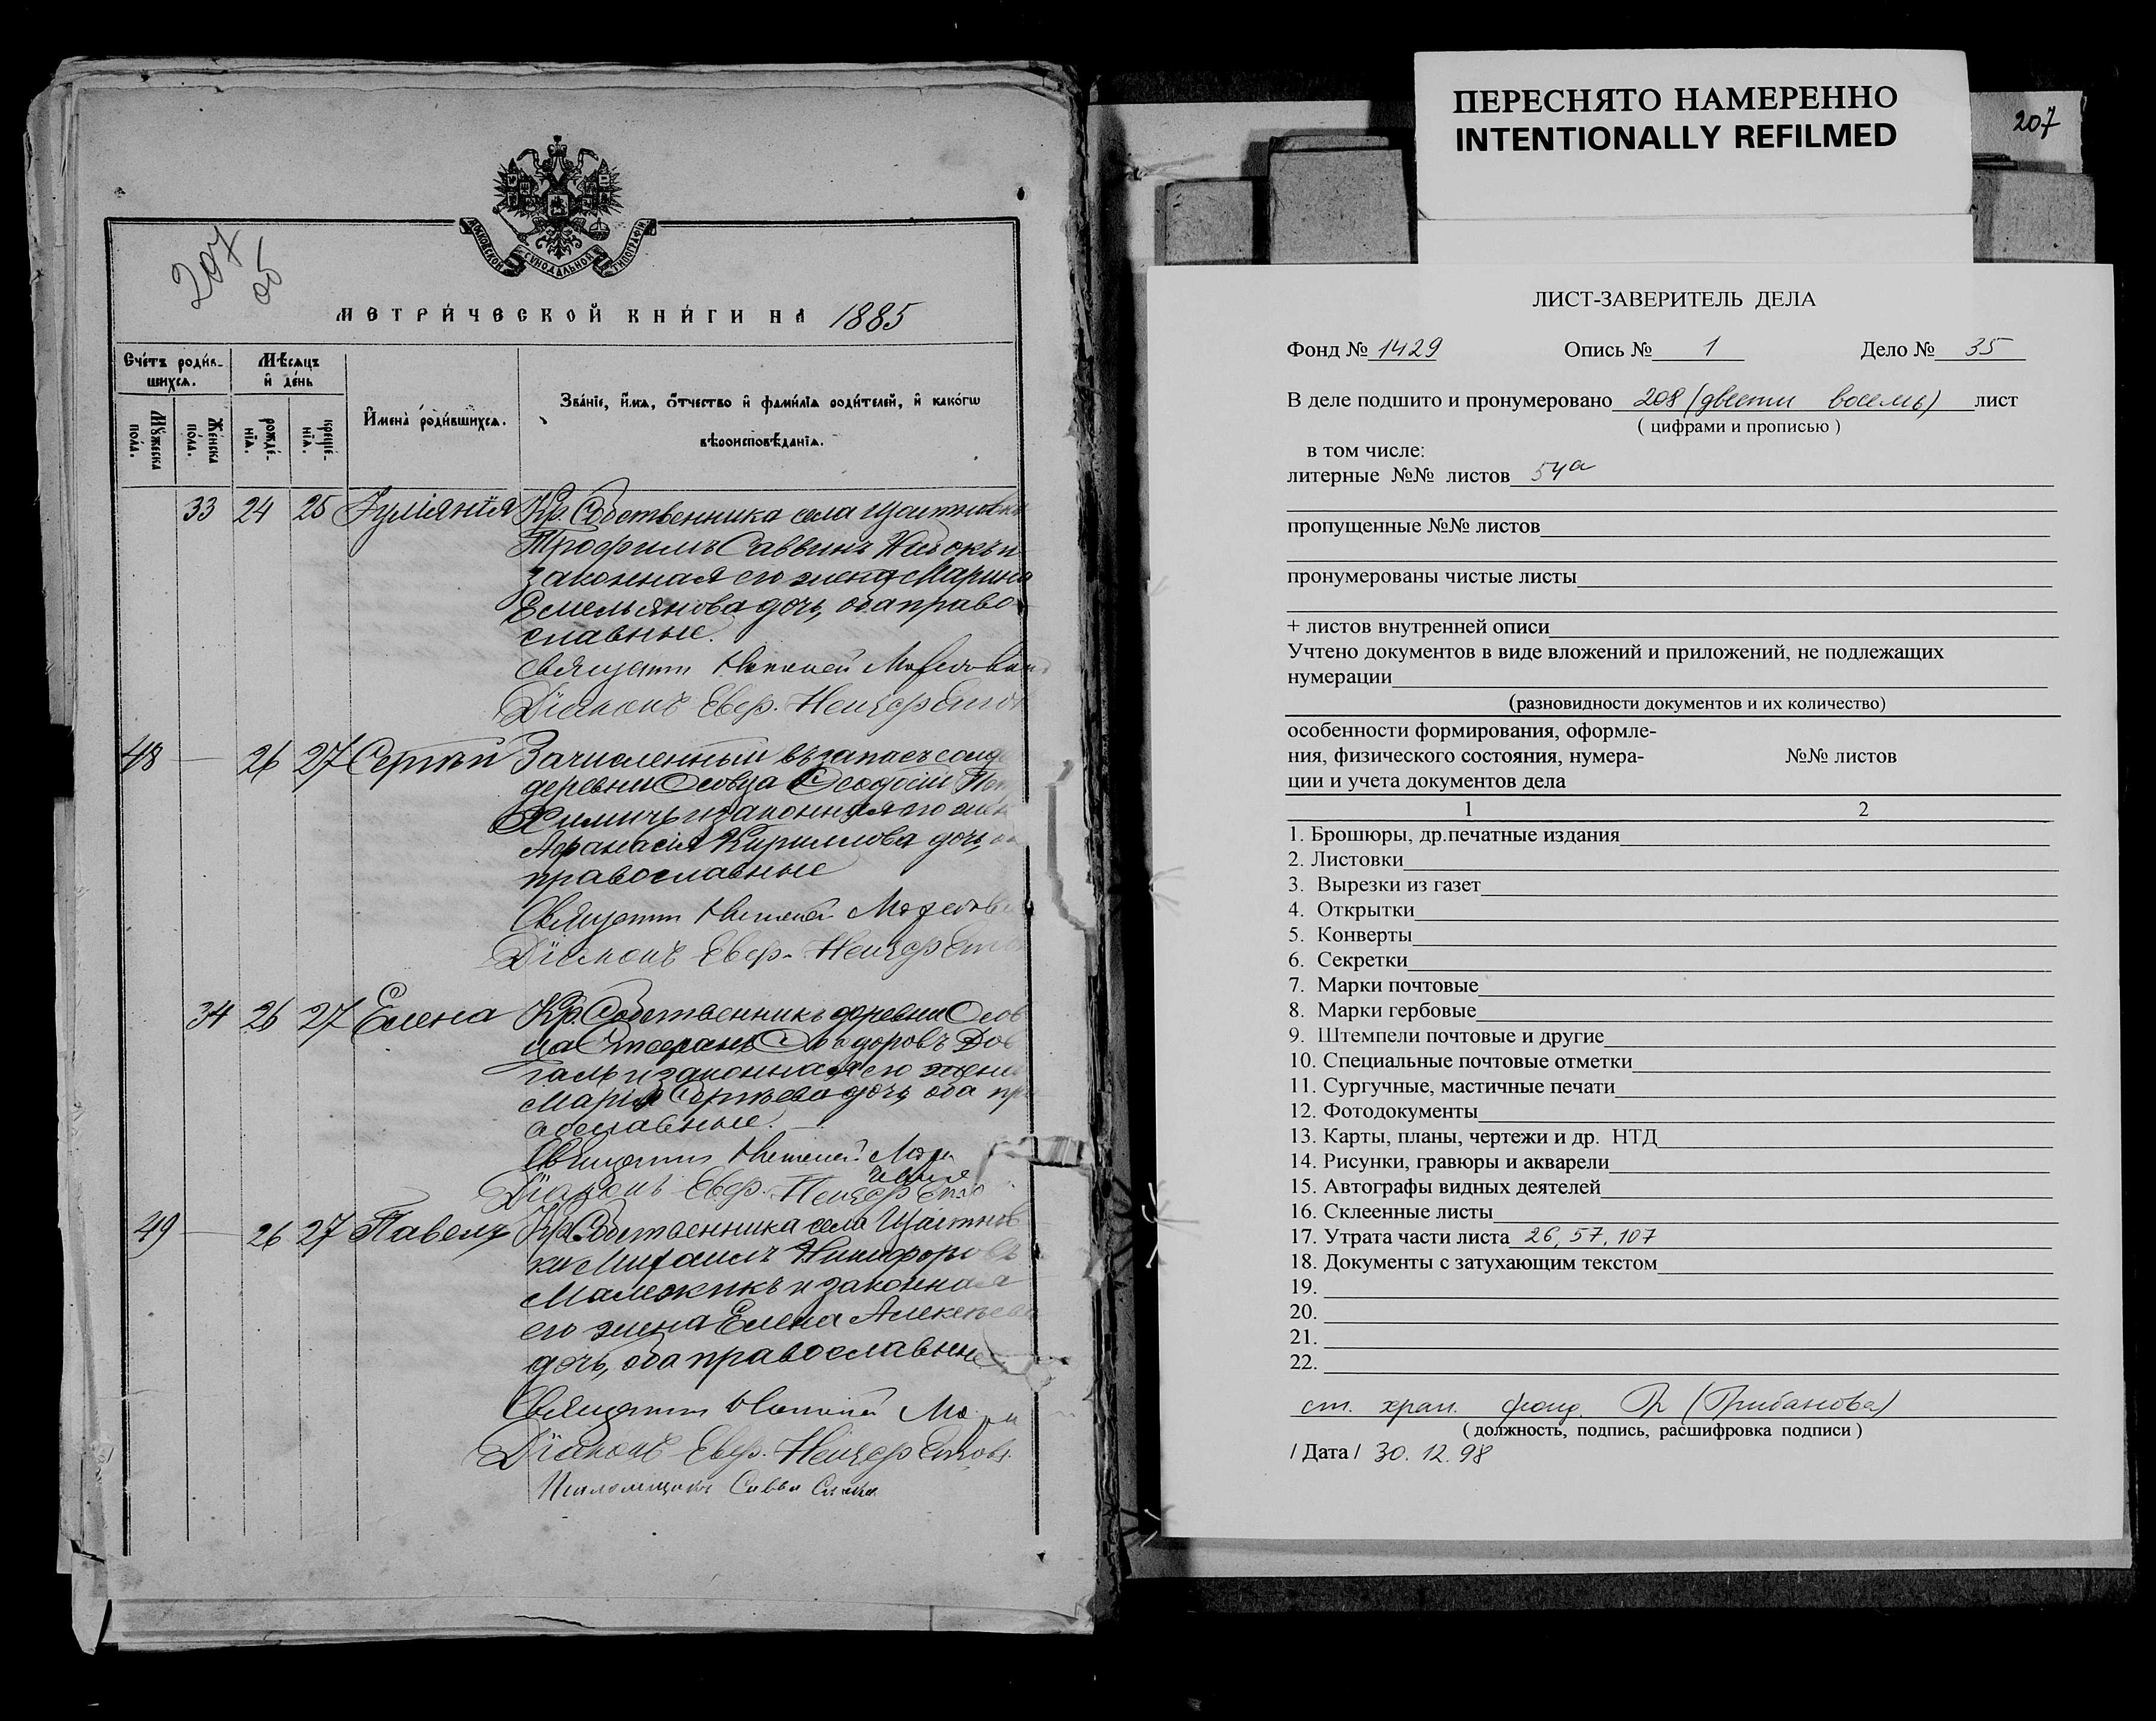 207
об
МОСКОВСКОЙ СѴНОДАЛЬНОЙ ТИПОГРАФІИ
МЕТРИ́ЧЕСКОЙ КНИ́ГИ НА 1885
Счетъ роди́вшихся.
Мѣсяцъ и день
Имена роди́вшихся.
Зва́ніе, и́мя, о́тчество и фами́лія роди́телей, и како́гѡ
вѣроисповѣ́данія.
Мꙋжеска пола.
Женска пола.
рожде́нія.
креще́нія.
33 24 25 Іуліянія Кр. Собственника села
Трофимъ Саввинъ
законная его жена Марина
Емельянова дочь, оба право
славные.
Священ
Діаконъ Евфр.
48 — 26 27 Сергѣй Зачисленный въ запасъ солд
деревни Осовца Ѳеодосій
Химичь и законная его жен
Афанасія Кириллова дочь,
православные
Священ
Діаконъ Евфр.
34 26 27 Елена Кр. Собственникъ деревни Осов
ца Стефанъ Ѳеодоровъ Дов
галь и законная его жена
Марія Сергѣева дочь, оба пр
авославные.
Діаконъ Евфр.
49 — 26 27 Павелъ Кр. Собственника села
ки Михаилъ Никифоровъ
Малежикъ и законная
его жена Елена Алексѣева
дочь, оба православные
Священ
Діаконъ Евфр.
Псаломщикъ Савва
ПЕРЕСНЯТО НАМЕРЕННО
INTENTIONALLY REFILMED
207
ЛИСТ-ЗАВЕРИТЕЛЬ ДЕЛА
Фонд № 1429 Опись № 1 Дело № 35
В деле подшито и пронумеровано 208 (двести восемь) лист
( цифрами и прописью )
в том числе:
литерные №№ листов 54а
пропущенные №№ листов
пронумерованы чистые листы
+ листов внутренней описи
Учтено документов в виде вложений и приложений, не подлежащих
нумерации
(разновидности документов и их количество)
особенности формирования, оформле-
ния, физического состояния, нумера- №№ листов
ции и учета документов дела
1 2
1. Брошюры, др.печатные издания
2. Листовки
3. Вырезки из газет
4. Открытки
5. Конверты
6. Секретки
7. Марки почтовые
8. Марки гербовые
9. Штемпели почтовые и другие
10. Специальные почтовые отметки
11. Сургучные, мастичные печати
12. Фотодокументы
13. Карты, планы, чертежи и др. НТД
14. Рисунки, гравюры и акварели
15. Автографы видных деятелей
16. Склеенные листы
17. Утрата части листа 26, 57, 107
18. Документы с затухающим текстом
19.
20.
21.
22.
ст. хран. фонд. (Грибанова)
( должность, подпись, расшифровка подписи )
/ Дата / 30. 12. 98